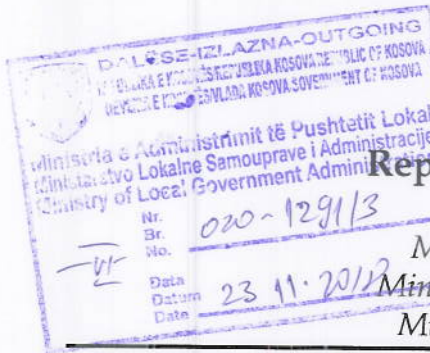 DALËSE-IZLAZNA-OUTGOING
REPUBLIKA E KOSOVËS REPUBLIKA KOSOVA REPUBLIC OF KOSOVA
QEVERIA E KOSOVËS VLADA KOSOVA GOVERNMENT OF KOSOVA
Ministria e Administrimit të Pushtetit Lokal
Ministarstvo Lokalne Samouprave i Administracije
Ministry of Local Government
Rep
Nr.
Br.
No.
020-1291/3
-VI-
M
Data
Datum
Date
23.11.
Min
Mi